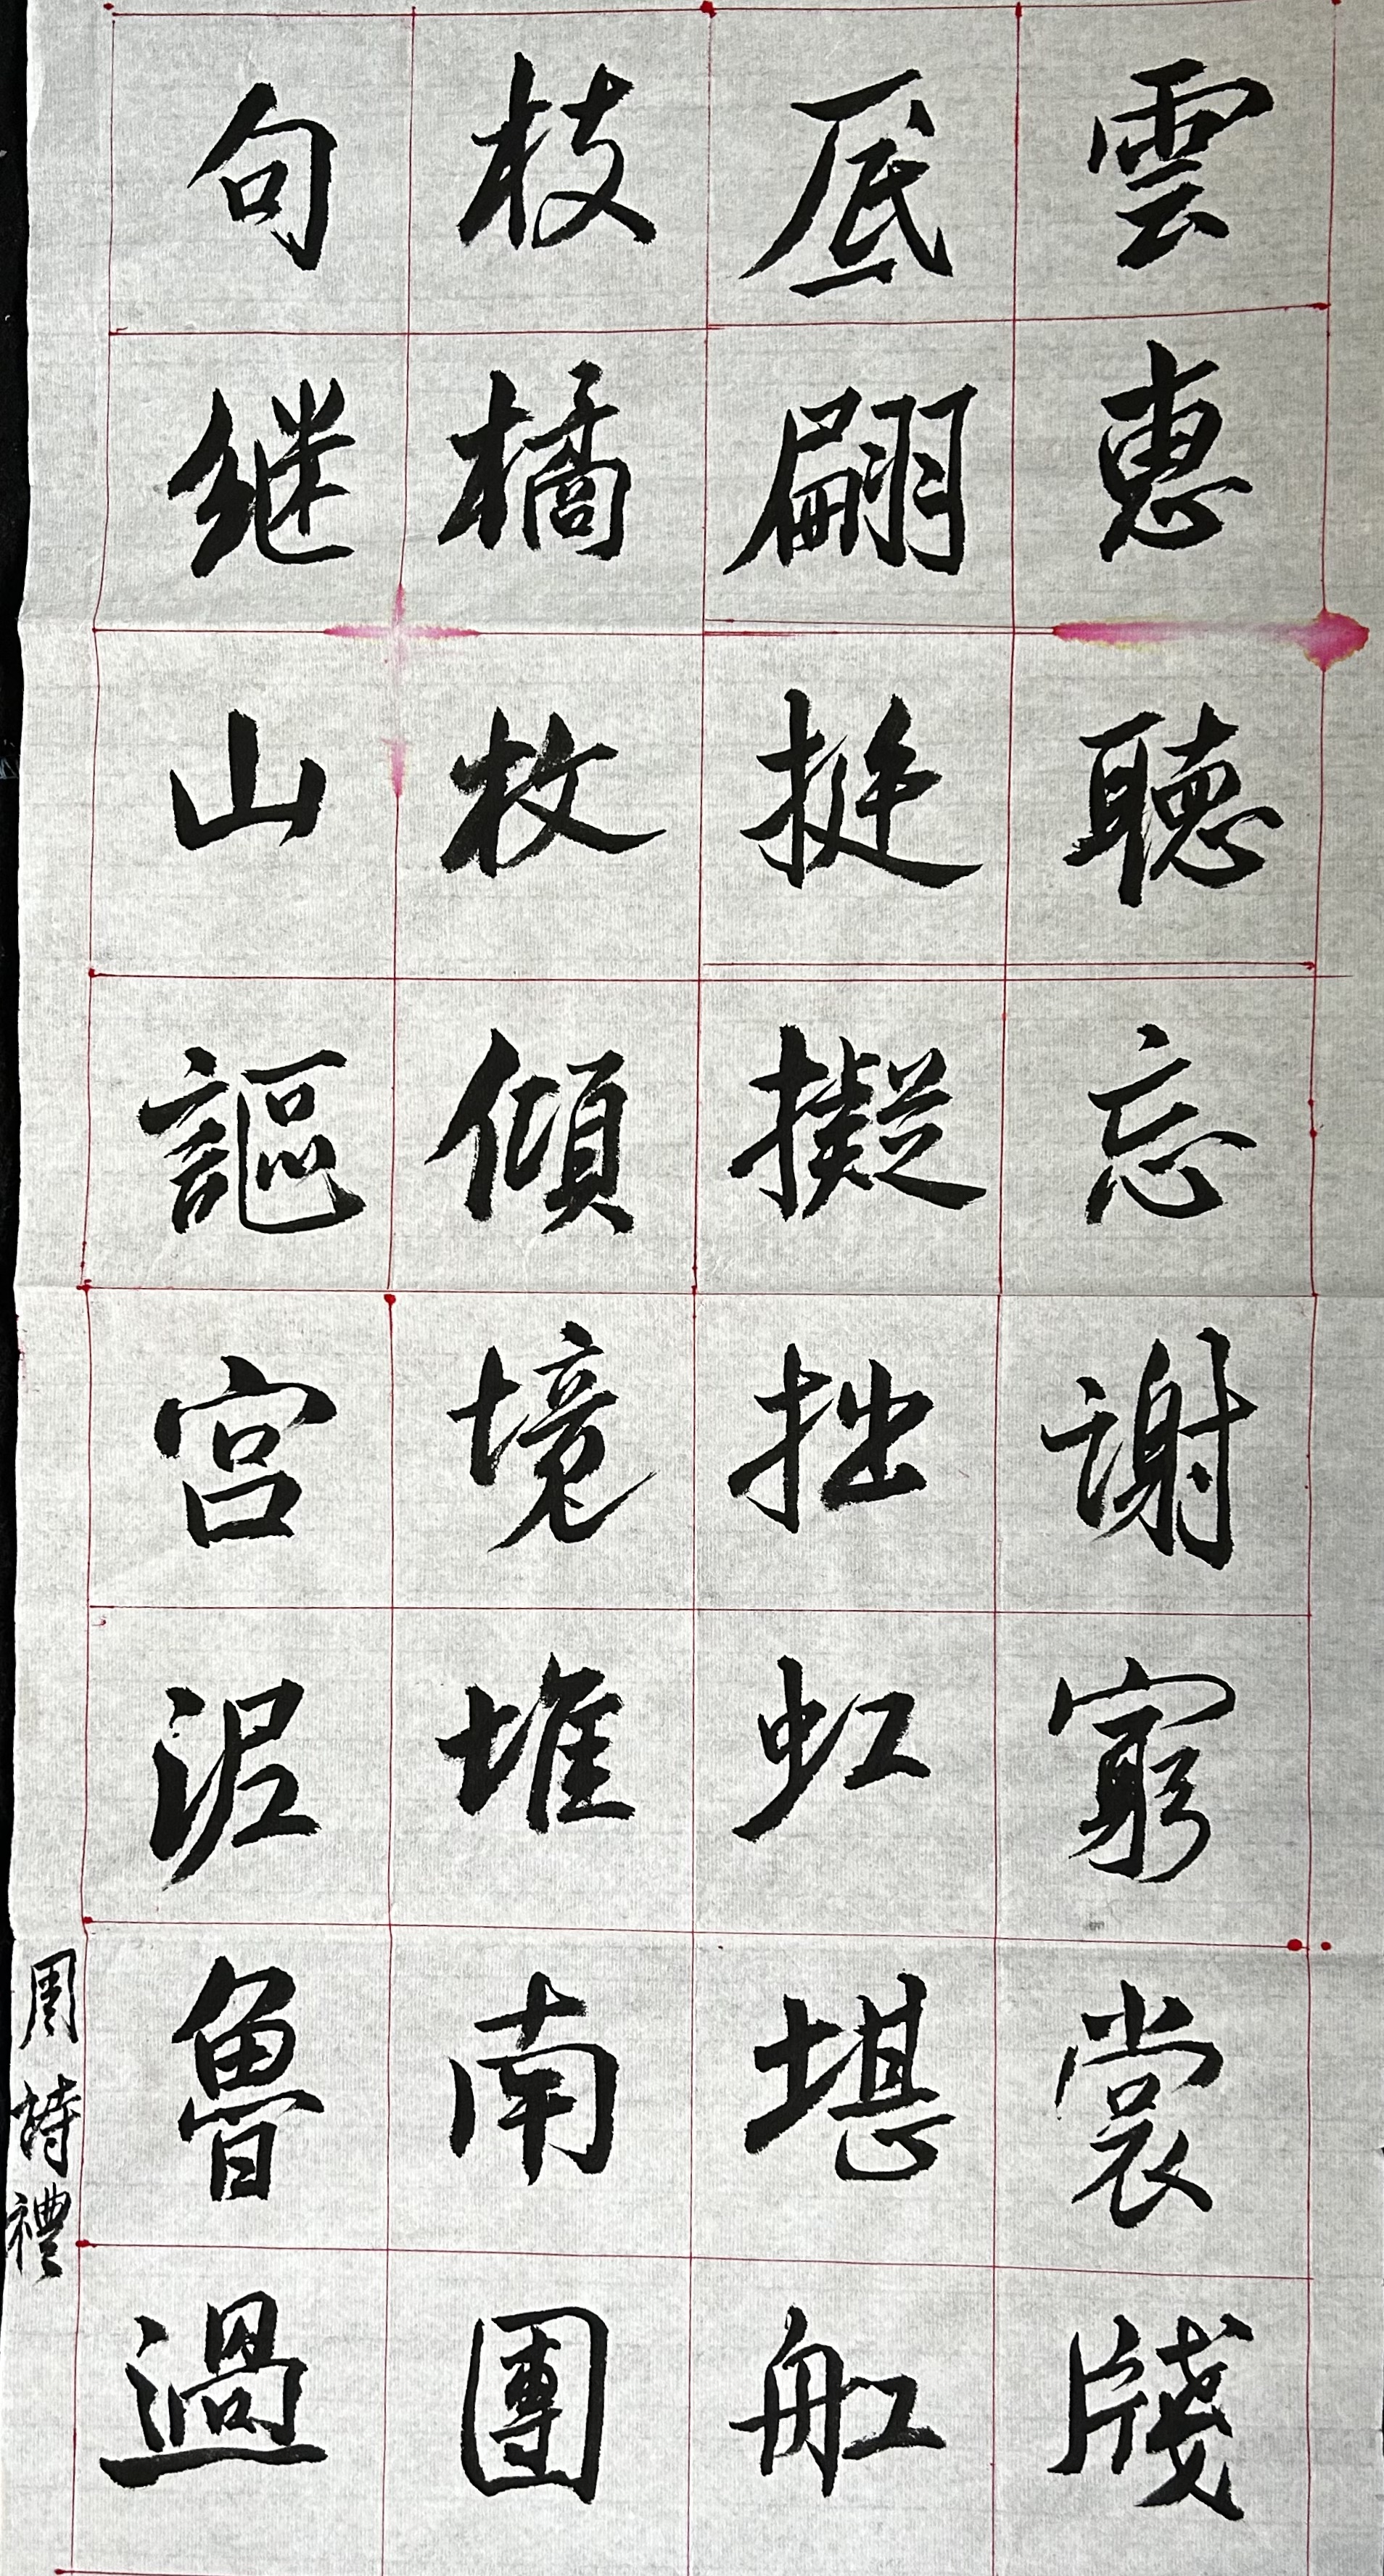 雲惠聽忘謝窮裳牋
底翩挺擬拙虹堪舡
枝橘枚傾境堆南團
句继山謳宫泥魯過
周詩禮